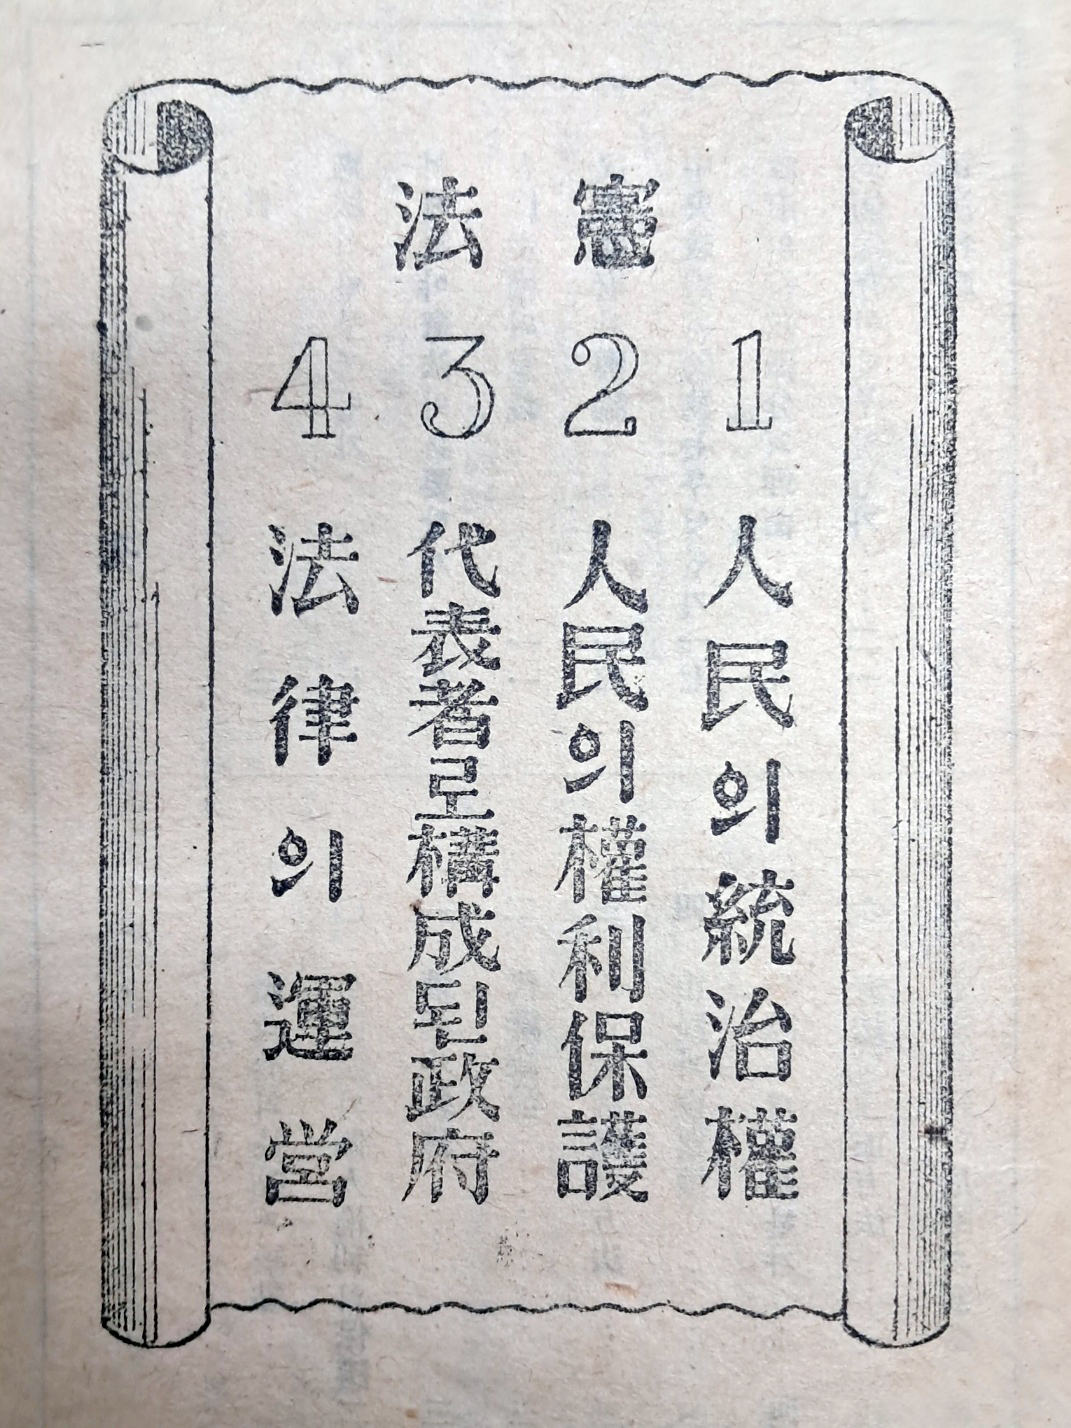 憲法
1 人民의統治權
2 人民의權利保護
3 代表者로構成된政府
4 法律의運営